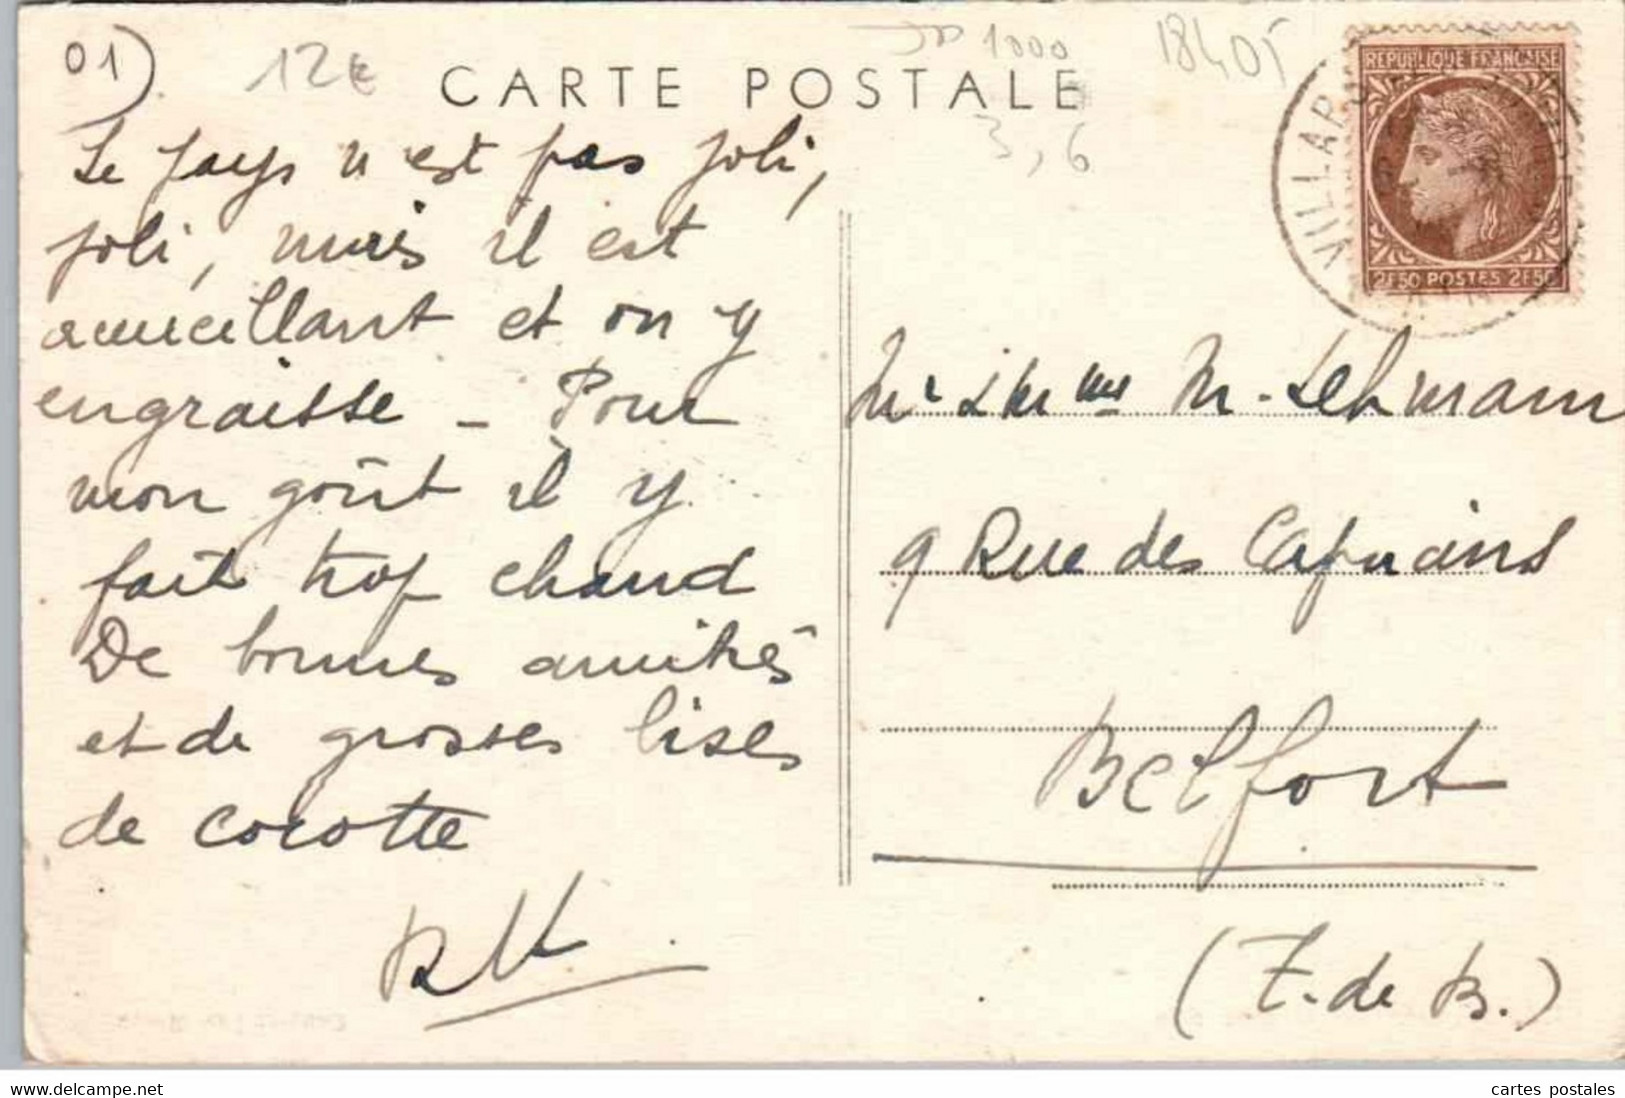 01)
12€
1000
18405
CARTE POSTALE
3,6
REPUBLIQUE FRANÇAISE
2F50 POSTES 2F50
VILLAR
Le pays n'est pas joli,
joli, mais il est
accueillant et on y
engraisse - Pour
mon goût il y
fait trop chaud
De bonnes amitiés
et de grosses bises
de cocotte
Mr & Mme M. Lehmann
9 Rue des Capucins
Belfort
(T. de B.)
www.delcampe.net
cartes postales